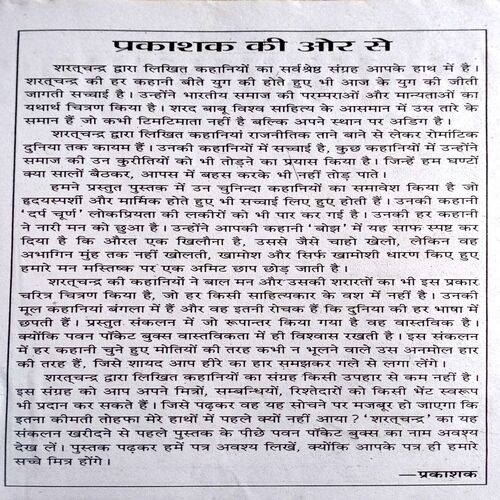 प्रकाशक की ओर से
शरत्चन्द्र द्वारा लिखित कहानियों का सर्वश्रेष्ठ संग्रह आपके हाथ में है।
शरत्चन्द्र की हर कहानी बीते युग की होते हुए भी आज के युग की जीती
जागती सच्चाई है। उन्होंने भारतीय समाज की परम्पराओं और मान्यताओं का
यथार्थ चित्रण किया है। शरद बाबू विश्व साहित्य के आसमान में उस तारे के
समान हैं जो कभी टिमटिमाता नहीं है बल्कि अपने स्थान पर अडिग है।
शरत्चन्द्र द्वारा लिखित कहानियां राजनीतिक ताने बाने से लेकर रोमांटिक
दुनिया तक कायम हैं। उनकी कहानियों में सच्चाई है, कुछ कहानियों में उन्होंने
समाज की उन कुरीतियों को भी तोड़ने का प्रयास किया है। जिन्हें हम घण्टों
क्या सालों बैठकर, आपस में बहस करके भी नहीं तोड़ पाते।
हमने प्रस्तुत पुस्तक में उन चुनिन्दा कहानियों का समावेश किया है जो
हृदयस्पर्शी और मार्मिक होते हुए भी सच्चाई लिए हुए होती हैं। उनकी कहानी
‘दर्प चूर्ण’ लोकप्रियता की लकीरों को भी पार कर गई है। उनकी हर कहानी
ने नारी मन को छुआ है। उन्होंने आपकी कहानी ‘बोझ’ में यह साफ स्पष्ट कर
दिया है कि औरत एक खिलौना है, उससे जैसे चाहो खेलो, लेकिन वह
अभागिन मुंह तक नहीं खोलती, खामोश और सिर्फ खामोशी धारण किए हुए
हमारे मन मस्तिष्क पर एक अमिट छाप छोड़ जाती है।
शरत्चन्द्र की कहानियों ने बाल मन और उसकी शरारतों का भी इस प्रकार
चरित्र चित्रण किया है, जो हर किसी साहित्यकार के वश में नहीं है। उनकी
मूल कहानियां बंगला में हैं और वह इतनी रोचक हैं कि दुनिया की हर भाषा में
छपती हैं। प्रस्तुत संकलन में जो रूपान्तर किया गया है वह वास्तविक है।
क्योंकि पवन पॉकेट बुक्स वास्तविकता में ही विश्वास रखती है। इस संकलन
में हर कहानी चुने हुए मोतियों की तरह कभी न भूलने वाले उस अनमोल हार
की तरह हैं, जिसे शायद आप हीरे का हार समझकर गले से लगा लेंगे।
शरत्चन्द्र द्वारा लिखित कहानियों का संग्रह किसी उपहार से कम नहीं है।
इस संग्रह को आप अपने मित्रों, सम्बन्धियों, रिश्तेदारों को किसी भेंट स्वरूप
भी प्रदान कर सकते हैं। जिसे पढ़कर वह यह सोचने पर मजबूर हो जाएगा कि
इतना कीमती तोहफा मेरे हाथों में पहले क्यों नहीं आया? ‘शरत्चन्द्र’ का यह
संकलन खरीदने से पहले पुस्तक के पीछे पवन पॉकेट बुक्स का नाम अवश्य
देख लें। पुस्तक पढ़कर हमें पत्र अवश्य लिखें, क्योंकि आपके पत्र ही हमारे
सच्चे मित्र होंगे।
—प्रकाशक